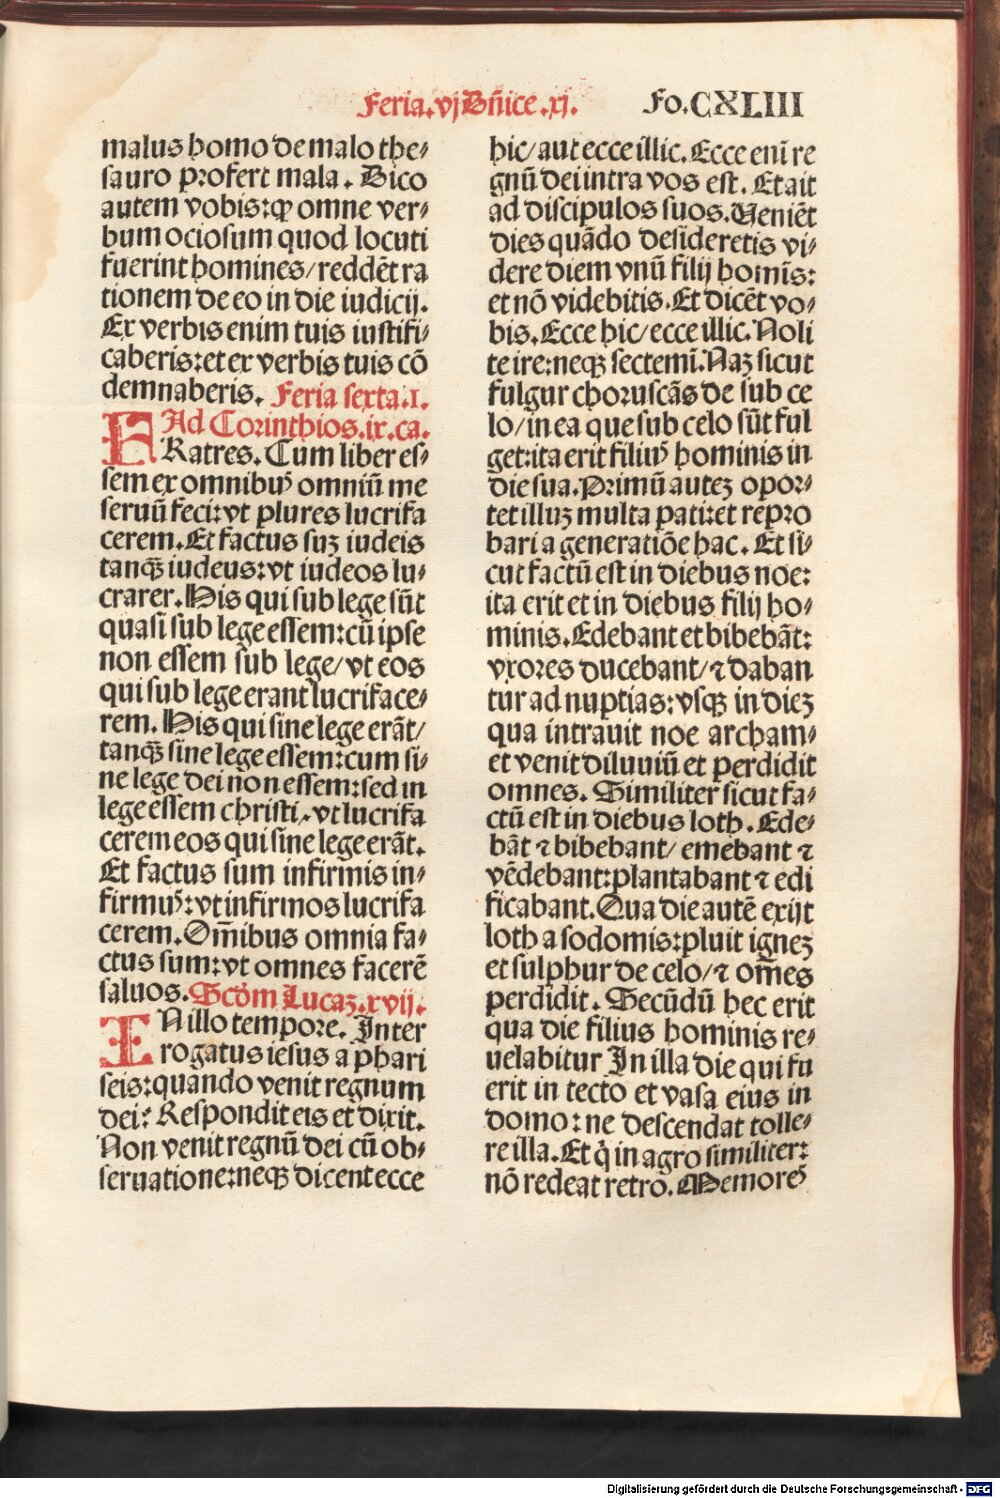 Feria.vj Dñice.xj. Fo.CXLIII
malus homo de malo the⸗
sauro profert mala. Dico
autem vobis:ꝙ omne ver⸗
bum ociosum quod locuti
fuerint homines/reddẽt ra
tionem de eo in die iudicij.
Ex verbis enim tuis iustifi⸗
caberis:et ex verbis tuis cõ
demnaberis. Feria sexta.I.
Ad Corinthios.ix.ca.
FRatres. Cum liber es⸗
sem ex omnibuꝰ omniũ me
seruũ feci:vt plures lucrifa
cerem.Et factus suꝫ iudeis
tanꝙ̃ iudeus:vt iudeos lu⸗
crarer.His qui sub lege sũt
quasi sub lege essem:cũ ipse
non essem sub lege/vt eos
qui sub lege erant lucriface⸗
rem. His qui sine lege erãt/
tanꝙ̃ sine lege essem:cum si⸗
ne lege dei non essem:sed in
lege essem christi,vt lucrifa
cerem eos qui sine lege erãt.
Et factus sum infirmis in⸗
firmuꝰ:vt infirmos lucrifa
cerem.Om̃ibus omnia fa⸗
ctus sum:vt omnes facerẽ
saluos. Scd̃m Lucaꝫ.xvij.
IN illo tempore. Inter
rogatus iesus a phari
seis:quando venit regnum
dei: Respondit eis et dixit.
Non venit regnũ dei cũ ob⸗
seruatione:neqꝫ dicent ecce
hic/aut ecce illic.Ecce eni᷑ re
gnũ dei intra vos est. Et ait
ad discipulos suos.Veniẽt
dies quãdo desideretis vi⸗
dere diem vnũ filij homĩs:
et nõ videbitis.Et dicẽt vo⸗
bis.Ecce hic/ecce illic.Noli
te ire:neqꝫ sectemĩ.Naꝫ sicut
fulgur choruscãs de sub ce
lo/in ea que sub celo sũt ful
get:ita erit filiuꝰ hominis in
die sua.Primũ auteꝫ opor⸗
tet illuꝫ multa pati:et repro
bari a generatiõe hac. Et si⸗
cut factũ est in diebus noe:
ita erit et in diebus filij ho⸗
minis.Edebant et bibebãt:
vxores ducebant/⁊ daban
tur ad nuptias:vsqꝫ in dieꝫ
qua intrauit noe archam⸗
et venit diluuiũ et perdidit
omnes. Similiter sicut fa⸗
ctũ est in diebus loth. Ede⸗
bãt ⁊ bibebant/ emebant ⁊
vẽdebant:plantabant ⁊ edi
ficabant.Qua die autẽ exijt
loth a sodomis:pluit igneꝫ
et sulphur de celo/⁊ om̃es
perdidit. Secũdũ hec erit
qua die filius hominis re⸗
uelabitur In illa die qui fu
erit in tecto et vasa eius in
domo:ne descendat tolle⸗
re illa.Et q̇ in agro similiter:
nõ redeat retro. Memoreꝰ
Digitalisierung gefördert durch die Deutsche Forschungsgemeinschaft - DFG